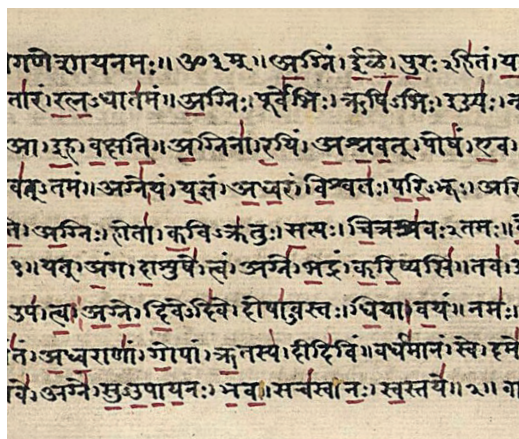 गणेशाय नमः॥ ॐ३म्॥ अ॒ग्निं। ई॒ळे॒। पु॒रःऽहि॑तं। य
ता॑रं। र॒त्न॒ऽधात॑मं॥ अ॒ग्निः। पूर्वे॑भिः। ऋषि॑ऽभिः। ईड्यः॑।
आ। इ॒ह। व॒क्ष॒ति॒॥ अ॒ग्निना॑। र॒यिं। अ॒श्न॒व॒त्। पोषं॑। ए॒व।
व॑त्ऽतमं॥ अग्ने॑। यं। य॒ज्ञं। अ॒ध्व॒रं। वि॒श्वतः॑। प॒रि॒ऽभूः। असि॑
अ॒ग्निः। होता॑। क॒विऽक्र॑तुः। स॒त्यः। चि॒त्रश्र॑वःऽतमः॥
यत्। अं॒ग। दा॒शुषे॑। त्वं। अग्ने॑। भ॒द्रं। क॒रि॒ष्यसि॑॥ तव॑
उप॑। त्वा॒। अ॒ग्ने॒। दि॒वेऽदि॑वे। दोषा॑ऽवस्तः। धि॒या। व॒यं॥ नमः॑।
तं। अ॒ध्व॒राणां॑। गो॒पां। ऋ॒तस्य॑। दीदि॑विं॥ वर्ध॑मानं। स्वे। दमे॑
वे॑। अग्ने॑। सु॒ऽउ॒पा॒य॒नः। भ॒व॒॥ सच॑स्व। नः॒। स्व॒स्तये॑॥२॥ वा